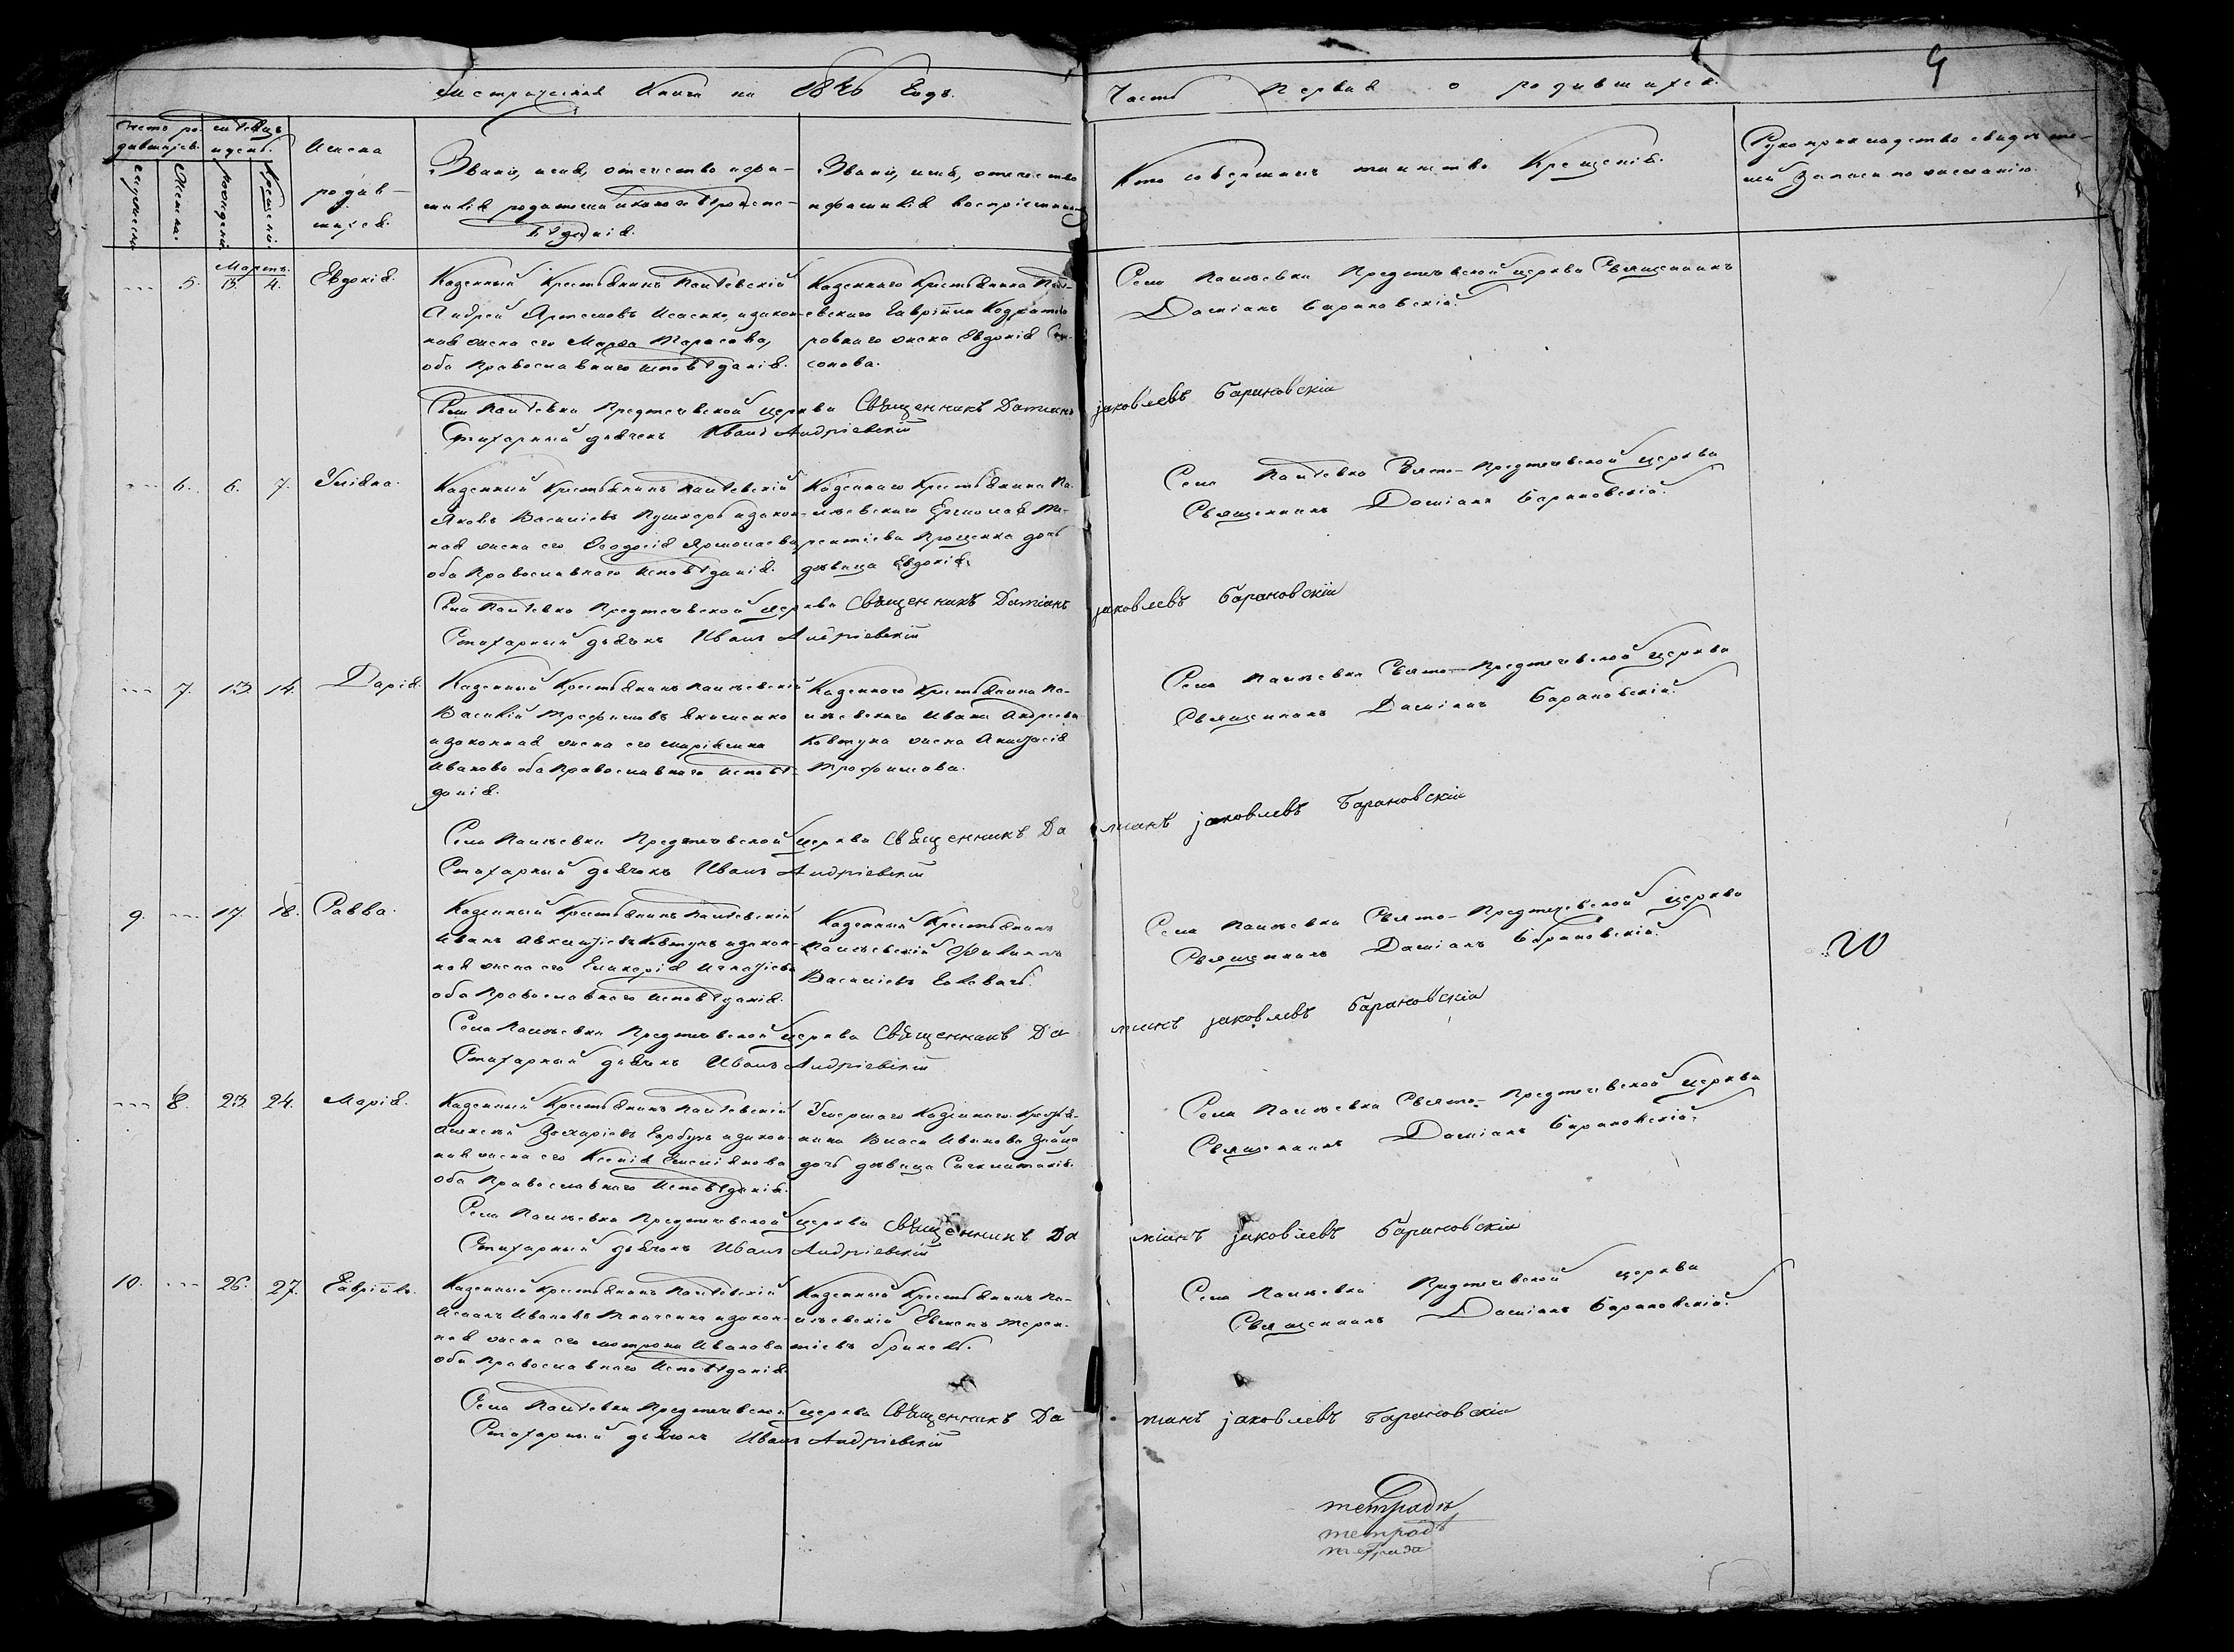 Метрическая Книга на 1846 Годъ.
Часть Первая о родившихся.
9
Счетъ ро-
дившихся.
Мужеска.
Женска.
Мѣсяцъ
и день.
рожденія.
Крещенія.
Имена
родив-
шихся.
Званіе, имя, отечество и фа-
милія родителей и какого вѣроиспо-
вѣданія.
Званіе, имя, отечество
и фамилія воспріемниковъ
Кто совершалъ таинство Крещенія.
Рукоприкладство свидѣте-
лей записи по желанію.
Мартъ.
--- 5. 3. 4. Евдокія.
Казенный Крестьянинъ Палѣевскій
Андрей Артемовъ Исаенко, и закон-
ная жена его Марѳа Тарасова,
оба Православнаго исповѣданія.
Казеннаго Крестьянина Палѣ-
евскаго Гавріила
жена Евдокія Сам-
сонова.
Села Палѣевки Предтечевской церкви Священникъ
Даміанъ Барановскій.
Села Палѣевки Предтечевской церкви Священникъ Даміанъ јаковлевъ Барановскій
Стихарный дьячекъ Иванъ Андріевскій
--- 6. 6. 7. Уліяна.
Казенный Крестьянинъ Палѣевскій
Яковъ Василіевъ Пушкарь и закон-
ная жена его Ѳеодосія Ярмолаева
оба Православнаго исповѣданія.
Казеннаго Крестьянина Па-
лѣевскаго Ермолая Те-
рентіева Прощенка дочь
дѣвица Евдокія.
Села Палѣевки Свято-Предтечевской церкви
Священникъ Даміанъ Барановскій.
Села Палѣевки Предтечевской церкви Священникъ Даміанъ јаковлевъ Барановскій
Стихарный дьячекъ Иванъ Андріевскій
--- 7. 13. 14. Дарія.
Казенный Крестьянинъ Палѣевскій
Василій Трофимовъ Якименко
и законная жена его Маріямна
Иванова оба Православнаго исповѣ-
данія.
Казенного Крестьянина Па-
лѣевскаго Ивана Андреева
Ковтуна жена Анастасія
Трофимова.
Села Палѣевки Свято-Предтечевской церкви
Священникъ Даміанъ Барановскій.
Села Палѣевки Предтечевской церкви Священникъ Даміанъ јаковлевъ Барановскій
Стихарный дьячекъ Иванъ Андріевскій
9. --- 17. 18. Савва.
Казенный Крестьянинъ Палѣевскій
Иванъ Ковтунъ и закон-
ная жена его Гликерія Игнатіева
оба Православнаго исповѣданія.
Казенный Крестьянинъ
Палѣевскій Филиппъ
Василіевъ
Села Палѣевки Свято-Предтечевской церкви
Священникъ Даміанъ Барановскій.
20
Села Палѣевки Предтечевской церкви Священникъ Даміанъ јаковлевъ Барановскій
Стихарный дьячекъ Иванъ Андріевскій
--- 8. 23. 24. Марія.
Казенный Крестьянинъ Палѣевскій
Алексѣй Захаріевъ Гарбузъ и закон-
ная жена его Ксенія Емеліянова
оба Православнаго исповѣданія.
Умершаго Казеннаго Крестья-
нина Власа Иванова
дочь дѣвица Синклитикія.
Села Палѣевки Свято-Предтечевской церкви
Священникъ Даміанъ Барановскій.
Села Палѣевки Предтечевской церкви Священникъ Даміанъ јаковлевъ Барановскій
Стихарный дьячекъ Иванъ Андріевскій
10. --- 26. 27. Гавріилъ.
Казенный Крестьянинъ Палѣевскій
Исаакъ Ивановъ Ткаченко и закон-
ная жена его Мотрона Иванова
оба Православнаго исповѣданія.
Казенный Крестьянинъ Па-
лѣевскій Терен-
тіевъ
Села Палѣевки Предтечевской церкви
Священникъ Даміанъ Барановскій.
Села Палѣевки Предтечевской церкви Священникъ Даміанъ јаковлевъ Барановскій
Стихарный дьячекъ Иванъ Андріевскій
тетрадь
тетрадь
тетради